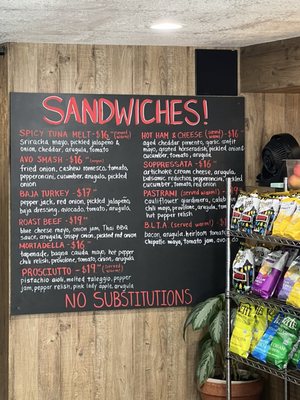 SANDWICHES!
SPICY TUNA MELT - $16
Sriracha mayo, pickled jalapeño &
onion, cheddar, arugula, tomato
AVO SMASH - $16
fried onion, cashew romesco, tomato,
pepperoncini, cucumber, arugula, pickled
onion
BAJA TURKEY - $17
pepper jack, red onion, pickled jalapeño,
baja dressing, avocado, tomato, arugula,
ROAST BEEF - $19
blue cheese mayo, onion jam, Thai BBQ
sauce, arugula, crispy onion, pickled red onion
MORTADELLA - $16
tapenade, bagna cauda mayo, hot pepper
chili relish, provolone, tomato, onion, arugula
PROSCIUTTO - $19 (served warm)
pistachio aioli, melted taleggio, fig
jam, pepper relish, pink lady apple, arugula
HOT HAM & CHEESE (served warm) - $16
aged cheddar pimento, garlic confit
mayo, grated horseradish, pickled onion
cucumber, tomato, arugula
SOPPRESSATA - $16
artichoke cream cheese, arugula,
balsamic reduction, pepperoncini,
cucumber, tomato, red onion
PASTRAMI (served warm) -
cauliflower giardiniera, calabrian
chili mayo, provolone, arugula, tomato
hot pepper relish
B.L.T.A (served warm)
bacon, arugula, heirloom tomato
chipotle mayo, tomato jam, avocado
NO SUBSTITUTIONS